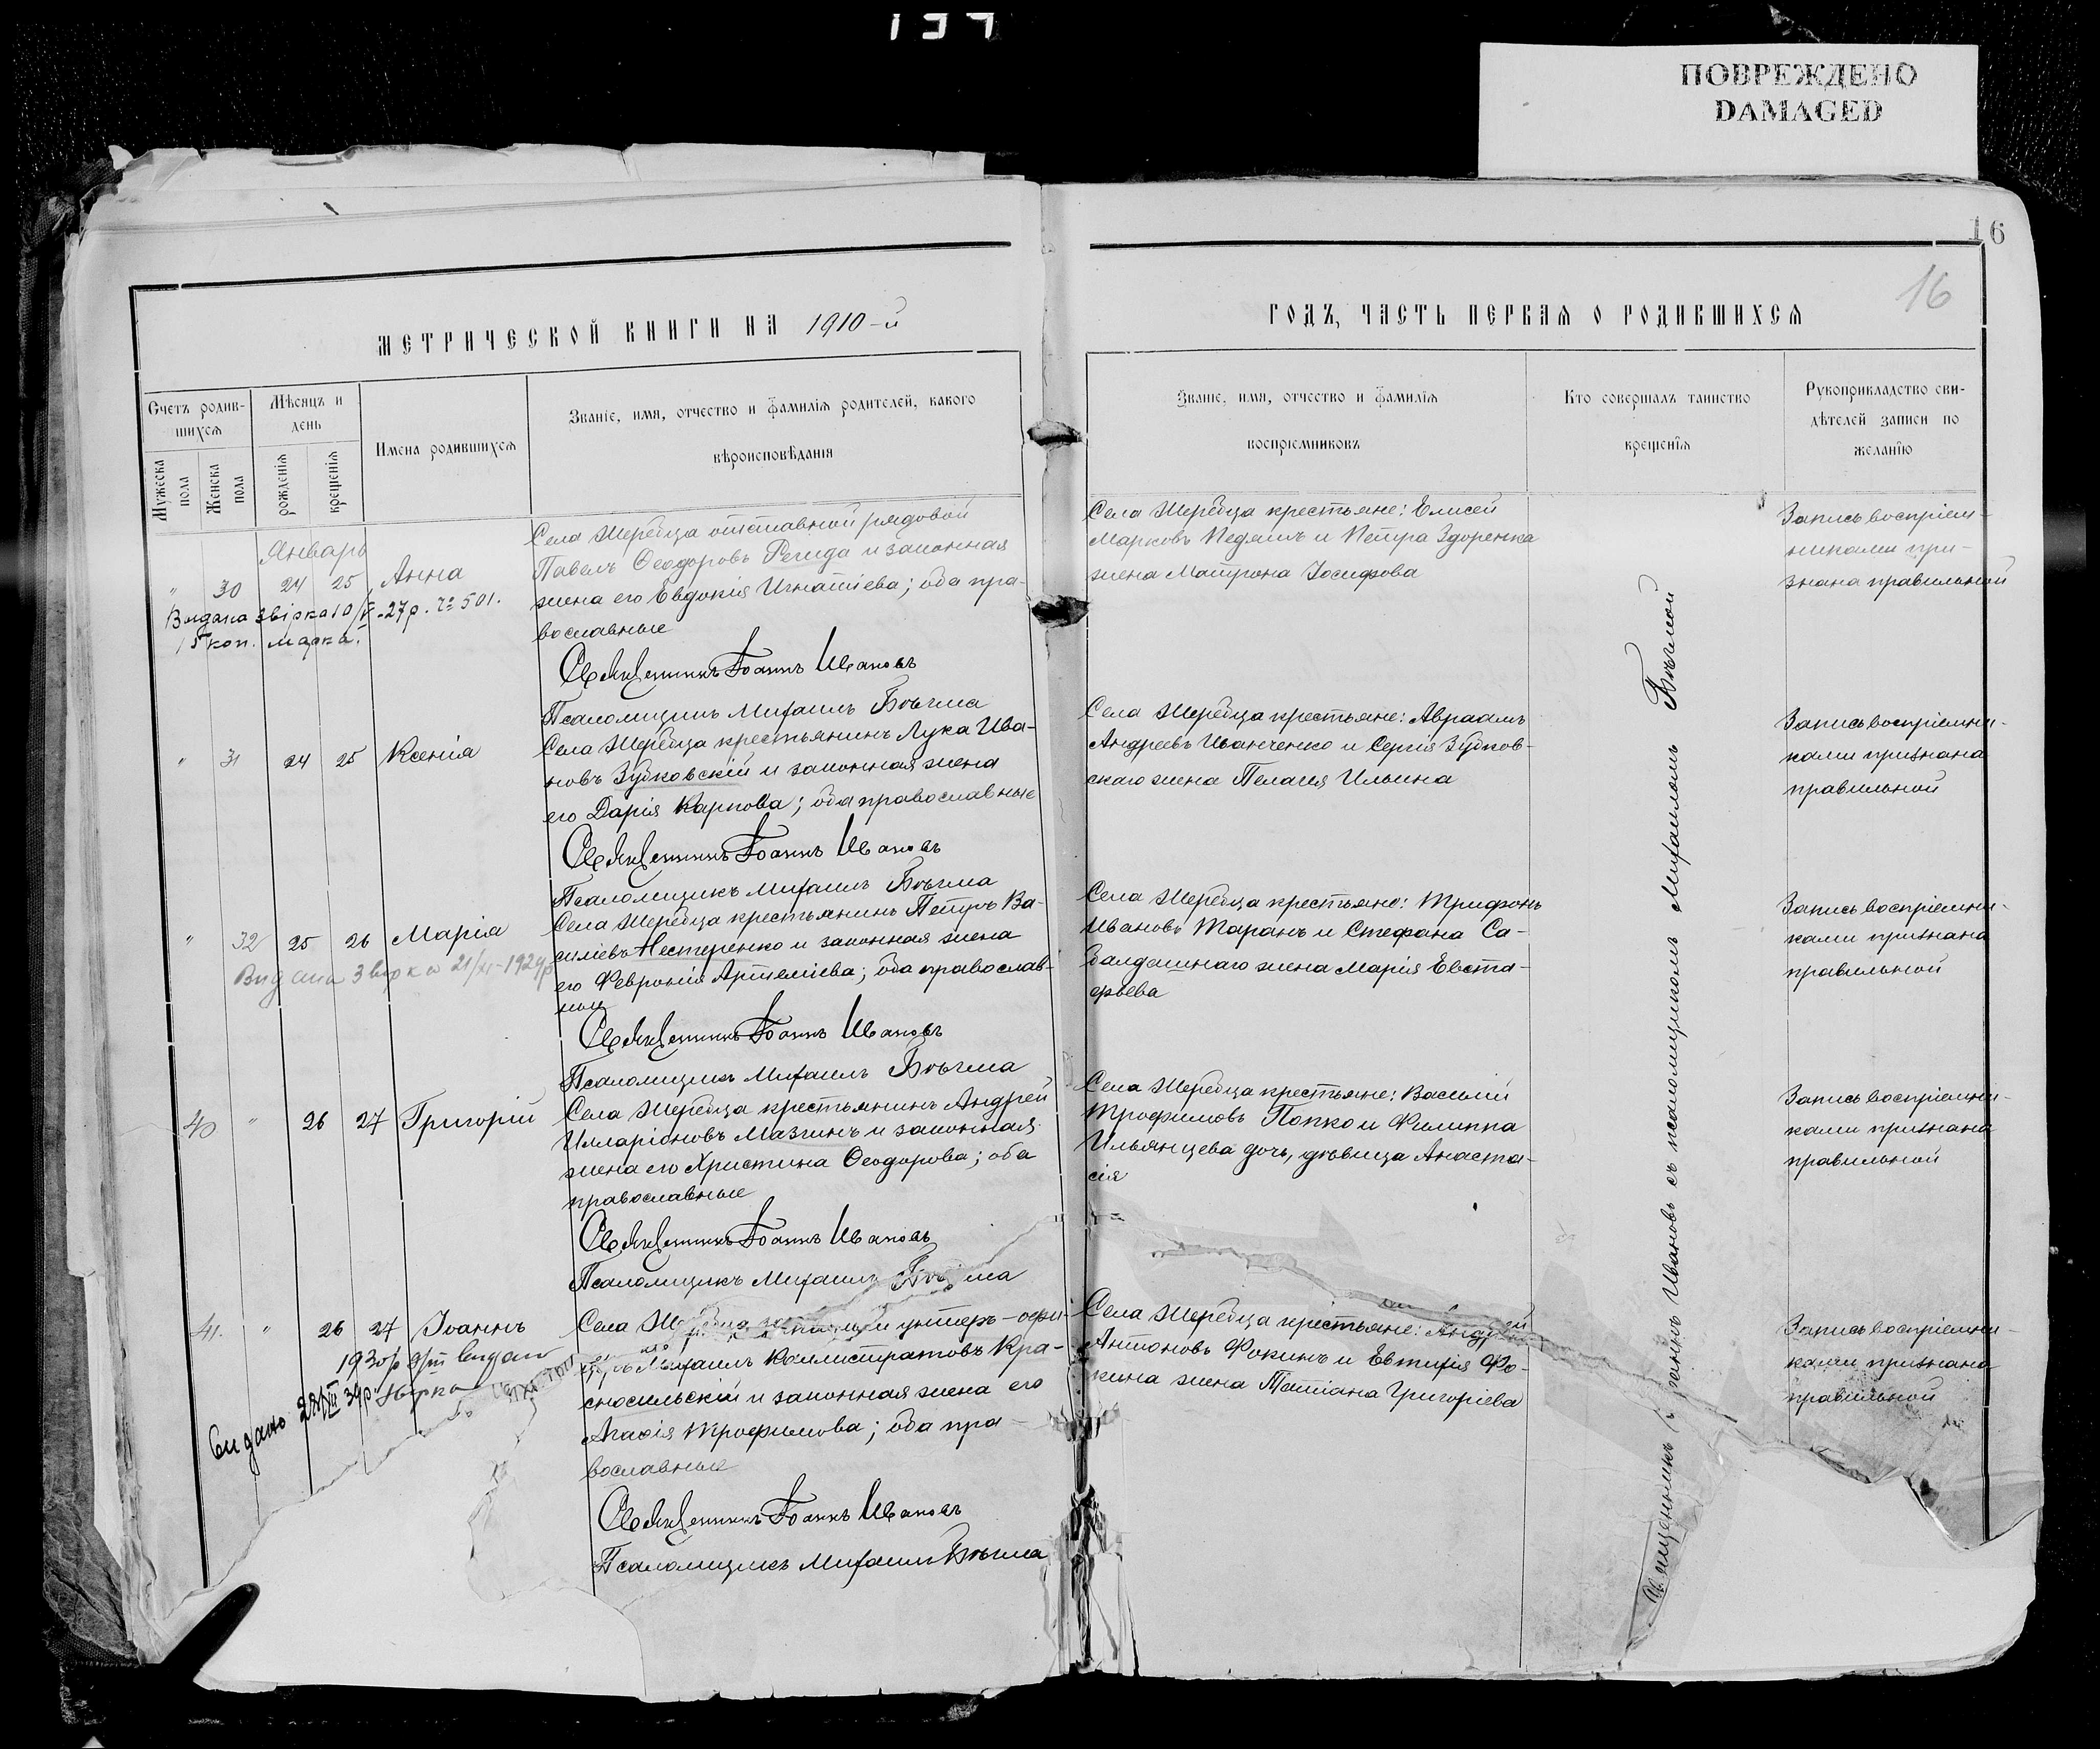 137
ПОВРЕЖДЕНО
DAMAGED
16
16
МЕТРИЧЕСКОЙ КНИГИ НА 1910-й
ГОДЪ, ЧАСТЬ ПЕРВАЯ О РОДИВШИХСЯ
Счетъ родив-
шихся
Мужеска пола
Женска пола
Мѣсяцъ и
день
рожденія
крещенія
Имена родившихся
Званіе, имя, отчество и фамилія родителей, какого
вѣроисповѣданія
Званіе, имя, отчество и фамилія
воспріемниковъ
Кто совершалъ таинство
крещенія
Рукоприкладство сви-
дѣтелей записи по
желанію
Январь
" 30 24 25 Анна
Видана звірка 10/V-27р. № 501.
15 коп. марка.
Села Жеребца отставной рядовой
Павелъ Ѳеодоровъ Регида и законная
жена его Евдокія Игнатіева; оба пра-
вославные
Священникъ Іоаннъ Ивановъ
Псаломщикъ Михаилъ Бѣгма
Села Жеребца крестьяне: Елисей
Марковъ Педашъ и Петра Здоренка
жена Матрона Іосифова
Запись воспріем-
никами при-
знана правильной
" 31 24 25 Ксенія
Села Жеребца крестьянинъ Лука Ива-
новъ Зубковскій и законная жена
его Дарія Карпова; оба православные
Священникъ Іоаннъ Ивановъ
Псаломщикъ Михаилъ Бѣгма
Села Жеребца крестьяне: Авраамъ
Андреевъ Иванченко и Сергія Зубков-
скаго жена Пелагія Ильина
Запись воспріемни-
ками признана
правильной
" 32 25 26 Марія
Видана звірка 21/XI-192
Села Жеребца крестьянинъ Петръ Ва-
силіевъ Нестеренко и законная жена
его Февронія Артеміева; оба православ-
ные
Священникъ Іоаннъ Ивановъ
Псаломщикъ Михаилъ Бѣгма
Села Жеребца крестьяне: Трифонъ
Ивановъ Таранъ и Стефана Са-
балдашнаго жена Марія Евста-
фьева
Запись воспріемни-
ками признана
правильной
40 " 26 27 Григорій
Села Жеребца крестьянинъ Андрей
Илларіоновъ Мазгинъ и законная
жена его Христина Ѳеодорова; оба
православные
Священникъ Іоаннъ Ивановъ
Псаломщикъ Михаилъ Бѣгма
Села Жеребца крестьяне: Василій
Трофимовъ Попко и Филиппа
Ильянцева дочь, дѣвица Анаста-
сія
Запись воспріемни-
ками признана
правильной
41. " 26 27 Іоаннъ
1930р видано
Видано звірка
Села Жеребца запасный унтеръ-офи-
церъ Михаилъ Каллистратовъ Кра-
сносельскій и законная жена его
Агаѳія Трофимова; оба пра-
вославные
Священникъ Іоаннъ Ивановъ
Псаломщикъ Михаилъ Бѣгма
Села Жеребца крестьяне: Андрей
Антоновъ Фокинъ и Евтихія Фо-
кина жена Татіана Григоріева
Запись воспріемни-
ками признана
правильной
Священникъ Іоаннъ Ивановъ съ псаломщикомъ Михаиломъ Бѣгмой